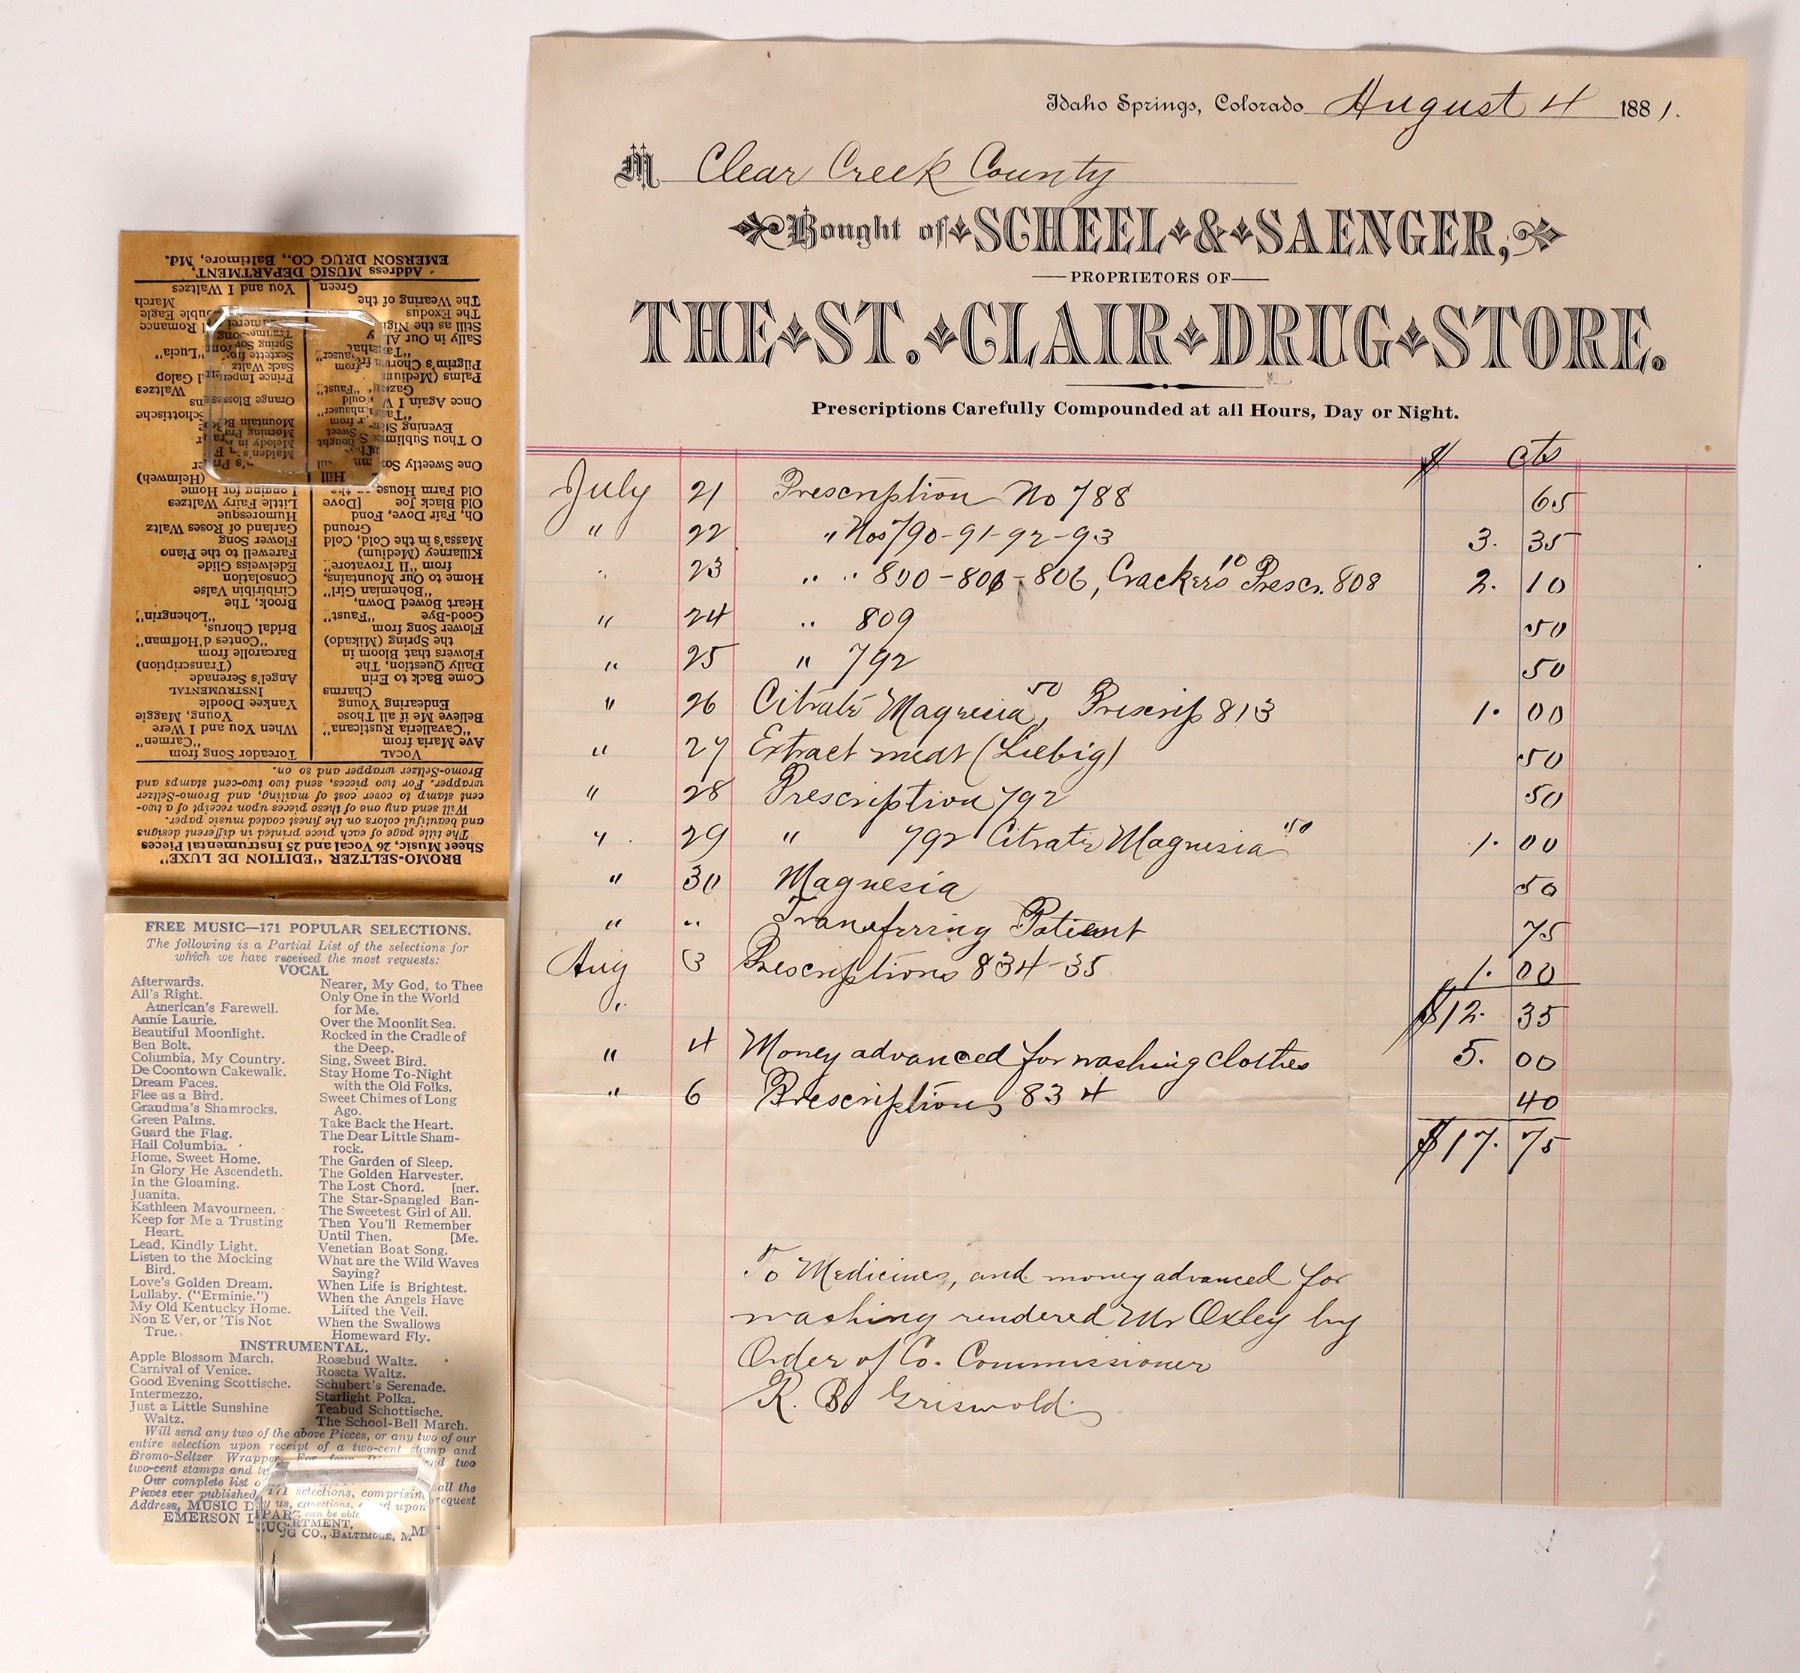 Idaho Springs, Colorado August 4 1881.
M Clear Creek County
Bought of SCHEEL & SAENGER,
PROPRIETORS OF
THE ST. CLAIR DRUG STORE.
Prescriptions Carefully Compounded at all Hours, Day or Night.
$ cts
July 21 Prescription No 788 65
" 22 " Nos 790-91-92-93 3. 35
23 " " 800-806, Crackers 10 Prescr. 808 2. 10
" 24 " 809 50
" 25 " 792 50
" 26 Citrate Magnesia 50, Prescrip 813 1. 00
" 27 Extract meat (Liebig) 50
" 28 Prescription 792 50
" 29 " 792 Citrate Magnesia 50 1. 00
" 30 Magnesia 50
" " Transferring Patient 75
Aug 3 Prescriptions 834-35 1. 00
" $12. 35
" 4 Money advanced for washing clothes 5. 00
" 6 Prescriptions 834 40
$17. 75
To Medicines, and money advanced for
washing rendered Mr Oxley by
Order of Co. Commissioner
R. B. Griswold
BROMO-SELTZER "EDITION DE LUXE"
Sheet Music, 26 Vocal and 25 Instrumental Pieces
The title page of each piece printed in different designs
and beautiful colors on the finest coated music paper.
Will send any one of these pieces upon receipt of a two-
cent stamp to cover cost of mailing, and Bromo-Seltzer
wrapper. For two pieces, send two two-cent stamps and
Bromo-Seltzer wrapper and so on.
VOCAL
Ave Maria from
"Cavalleria Rusticana"
Believe Me if all Those
Endearing Young
Charms
Come Back to Erin
Daily Question, The
Flowers that Bloom in
the Spring (Mikado)
Flower Song from
Good-Bye "Faust"
Heart Bowed Down,
"Bohemian Girl"
Home to Our Mountains,
from "Il Trovatore"
Killarney (Medium)
Massa's in the Cold, Cold
Ground
Oh, Fair Dove, Fond
Old Black Joe [Dove
Old Farm House on the
Hill
One Sweetly
O Thou Sublime Sweet
Evening Star from
"Tannhauser"
Once Again I Would
"Faust"
Palms (Medium
Pilgrim's Chorus from
"Tannhauser"
Sally in Our Alley
Still as the Night
The Exodus
The Wearing of the
Green
Toreador Song from
"Carmen"
When You and I Were
Young, Maggie
Yankee Doodle
INSTRUMENTAL
Angel's Serenade
(Transcription)
Barcarolle from
"Contes d'Hoffman"
Bridal Chorus,
"Lohengrin"
Brook, The
Ciribiribin Valse
Consolation
Edelweiss Glide
Farewell to the Piano
Flower Song
Garland of Roses Waltz
Humoresque
Little Fairy Waltzes
Longing for Home
(Heimweh)
Maiden's Prayer
Melody in F
Morning Prayer
Mountain Belle
Schottische
Orange Blossoms
Waltzes
Prince Imperial Galop
Sack Waltz
Sextette from "Lucia"
Spring Song
Romance
Double Eagle
March
You and I Waltzes
Address MUSIC DEPARTMENT,
EMERSON DRUG CO., Baltimore, Md.
FREE MUSIC—171 POPULAR SELECTIONS.
The following is a Partial List of the selections for
which we have received the most requests:
VOCAL
Afterwards.
All's Right.
American's Farewell.
Annie Laurie.
Beautiful Moonlight.
Ben Bolt.
Columbia, My Country.
De Coontown Cakewalk.
Dream Faces.
Flee as a Bird.
Grandma's Shamrocks.
Green Palms.
Guard the Flag.
Hail Columbia.
Home, Sweet Home.
In Glory He Ascendeth.
In the Gloaming.
Juanita.
Kathleen Mavourneen.
Keep for Me a Trusting
Heart.
Lead, Kindly Light.
Listen to the Mocking
Bird.
Love's Golden Dream.
Lullaby. ("Erminie.")
My Old Kentucky Home.
Non E Ver, or 'Tis Not
True.
Nearer, My God, to Thee
Only One in the World
for Me.
Over the Moonlit Sea.
Rocked in the Cradle of
the Deep.
Sing, Sweet Bird.
Stay Home To-Night
with the Old Folks.
Sweet Chimes of Long
Ago.
Take Back the Heart.
The Dear Little Sham-
rock.
The Garden of Sleep.
The Golden Harvester.
The Lost Chord. [ner.
The Star-Spangled Ban-
The Sweetest Girl of All.
Then You'll Remember
Until Then. [Me.
Venetian Boat Song.
What are the Wild Waves
Saying?
When Life is Brightest.
When the Angels Have
Lifted the Veil.
When the Swallows
Homeward Fly.
INSTRUMENTAL.
Apple Blossom March.
Carnival of Venice.
Good Evening Scottische.
Intermezzo.
Just a Little Sunshine
Waltz.
Rosebud Waltz.
Roseta Waltz.
Schubert's Serenade.
Starlight Polka.
Teabud Schottische.
The School-Bell March.
Will send any two of the above Pieces, or any two of our
entire selection upon receipt of a two-cent stamp and
Bromo-Seltzer Wrapper. For four and two
two-cent stamps and
Our complete list of 171 selections, comprising all the
Pieces ever published by us, can be obtained upon request
Address, MUSIC DEPARTMENT,
EMERSON DRUG CO., BALTIMORE, M